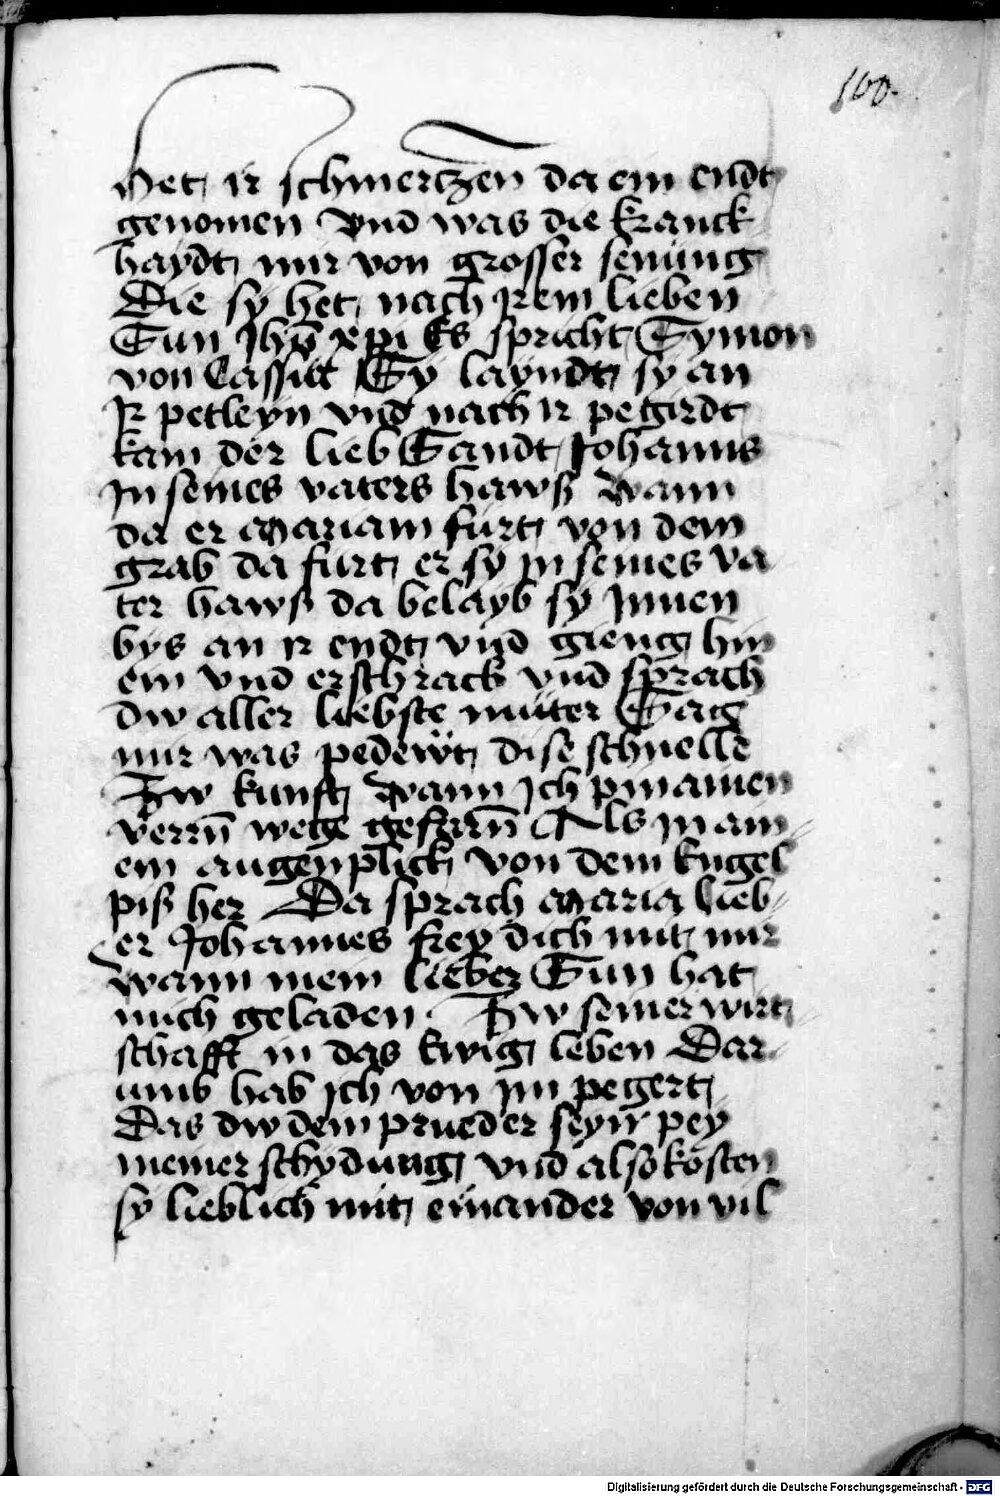 160.
Het ir schmertzen da ein endt
genomen Vnd was die kranck
haydt nur von grosser senung
Die sy het nach Jrem lieben
Sun Jhu xpi Es spricht Symon
von Cassia Sy layndt sy an
Jr petleyn vnd nach ir pegirdt
kam der lieb Sandt Johanns
Jn seines vaters hawß Wann
da er Mariam fürt von dem
grab da furt er sy jn seines va
ter hawß da belayb sy Jnnen
bys an ir endt vnd gieng hin
ein vnd erschrack vnd sprach
Dw aller liebste müter Sag
mir was pedewt dise schnelle
Zw kunft Wann Jch pin ainen
verrn wege gefarn Als jn ain
em augenplick von dem Engel
piß her Da sprach Maria lieb
er Johannes frey dich mit mir
wann mein lieber Sun hat
mich geladen Zw seiner wirt
schafft in das Ewig leben Dar
umb hab Jch von im pegert
Das dw dem prueder seyst pey
meiner schydung vnd also kosten
sy lieblich mit einander von vil
Digitalisierung gefördert durch die Deutsche Forschungsgemeinschaft - DFG